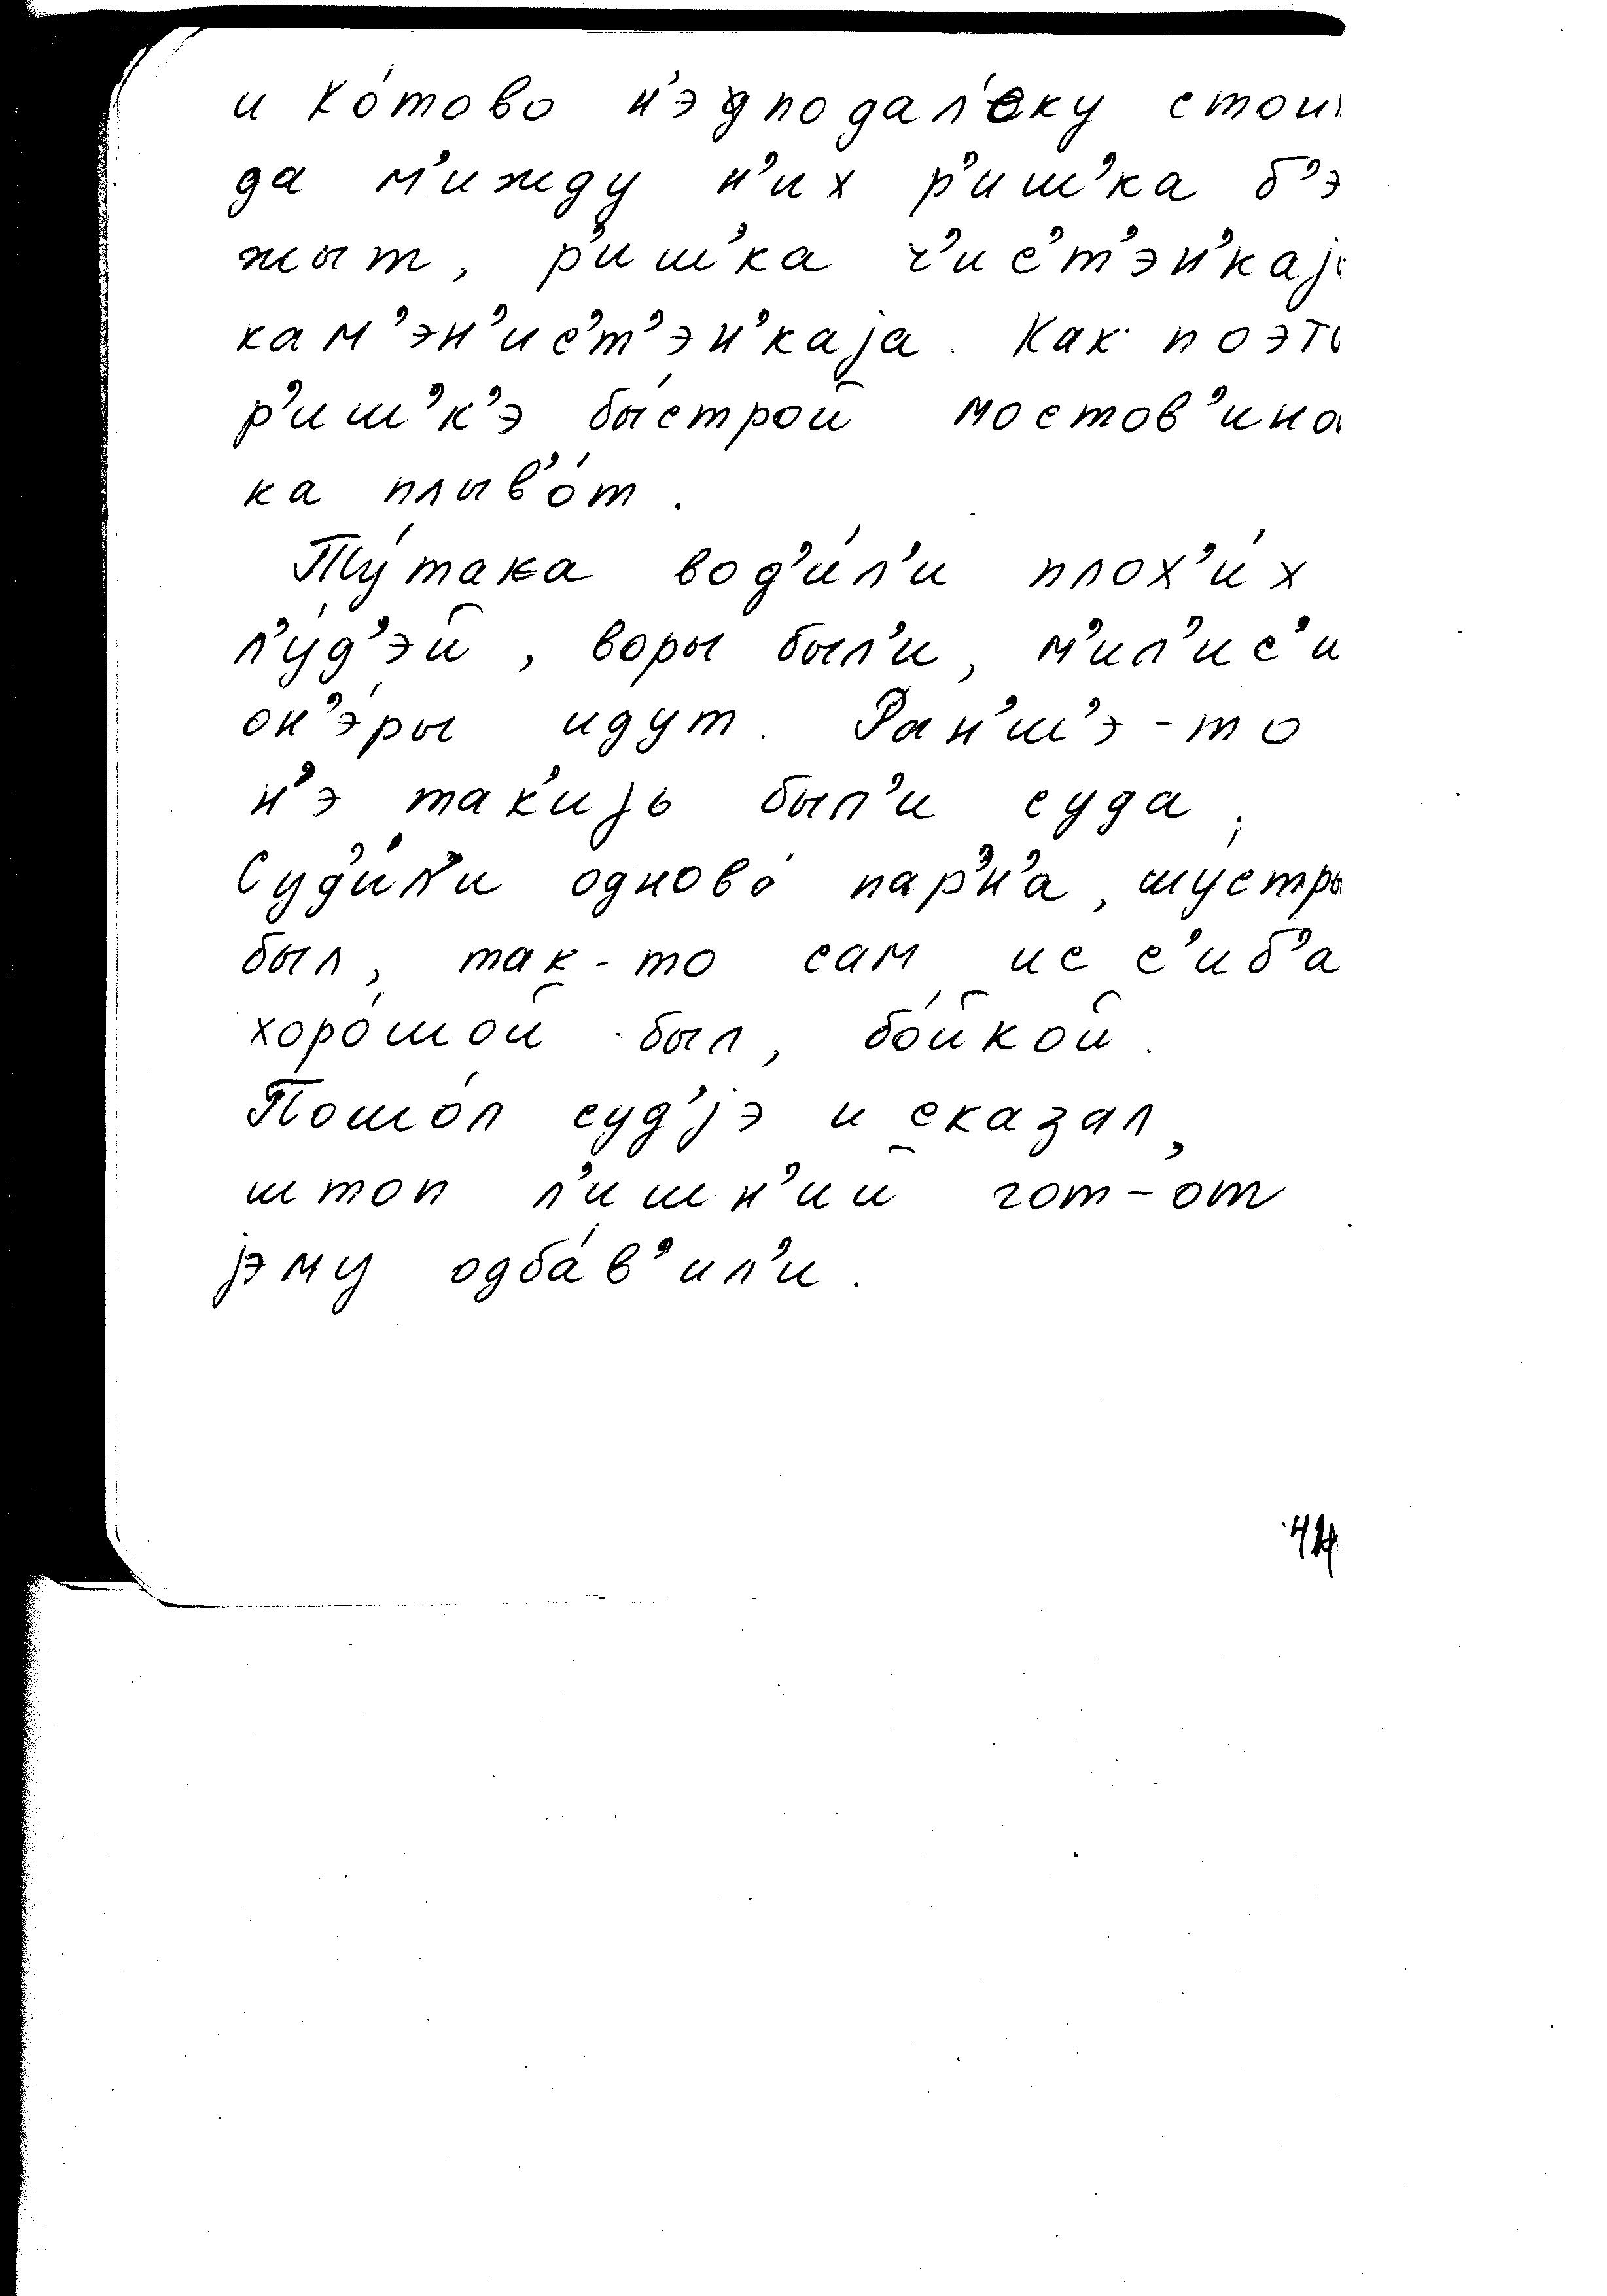 и Ко́тово н'эдподал'оку стои
да м'ижду н'их р'иш'ка б'э
жыт, р'иш'ка ч'ис'т'эн'кај
кам'эн'ис'т'эн'каја. Как поэт
р'иш'к'э бы́строй мостов'ина
ка плыв'о́т.
Ту́така вод'и́л'и плох'и́х
л'у́д'эй, воры был'и, м'ил'ис'и
он'э́ры идут. Ран'ш'э-то
н'э так'ијь был'и суда.
Суд'и́л'и одново́ пар'н'а, шу́стры
был, так-то сам ис с'иб'а
хоро́шой был, бо́йкой.
Пошо́л суд'јэ и сказал,
штоп л'ишн'ий гот-от
јэму одба́в'ил'и.